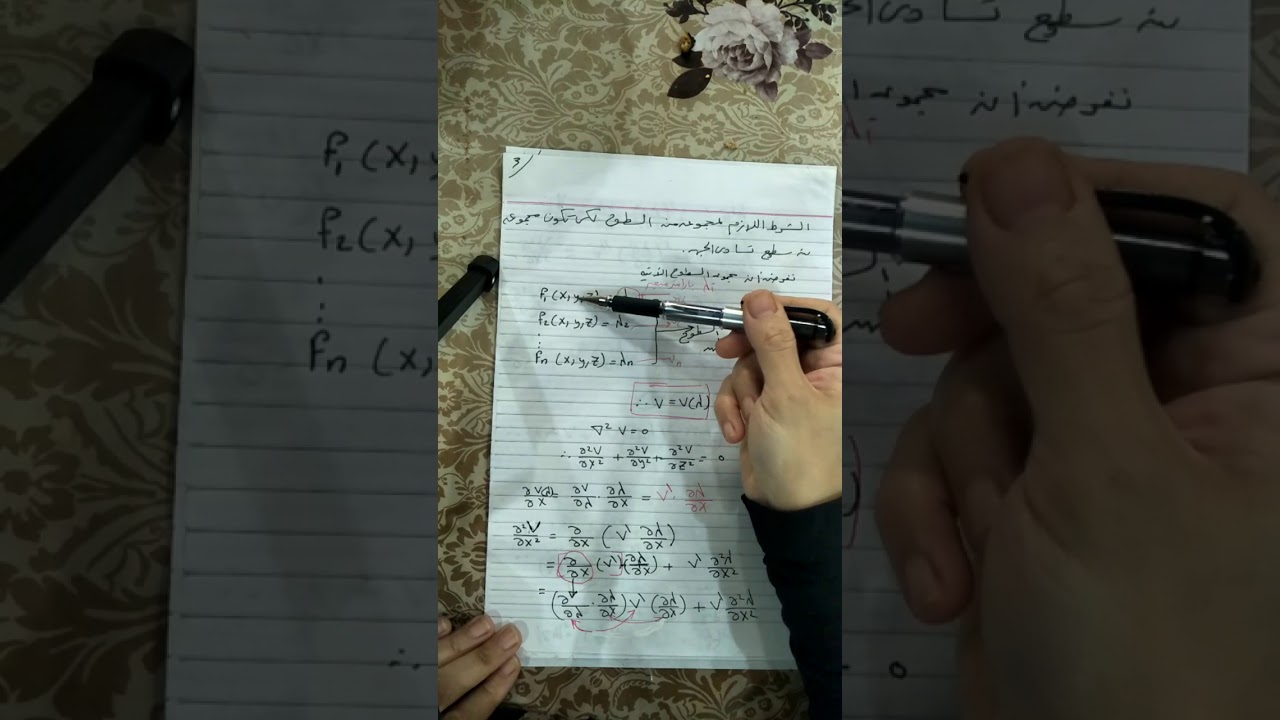 3/
الشرط اللازم لمجموعه من السطوح لكى تكون مجموعه
من سطوح تساوى الجهد.
نفرض أن مجموعه السطوح الاتيه
f₁(x, y, z)
f₂(x, y, z) = λ₂
السطوح
⋮
fₙ (x, y, z) = λₙ
∴ V = V(λ)
∇² V = 0
∴ ∂²V/∂x² + ∂²V/∂y² + ∂²V/∂z² = 0
∂V(λ)/∂x = ∂V/∂λ · ∂λ/∂x = V' ∂λ/∂x
∂²V/∂x² = ∂/∂x (V' ∂λ/∂x)
= ∂/∂x (V')(∂λ/∂x) + V' ∂²λ/∂x²
= (∂/∂λ · ∂λ/∂x) V' (∂λ/∂x) + V' ∂²λ/∂x²